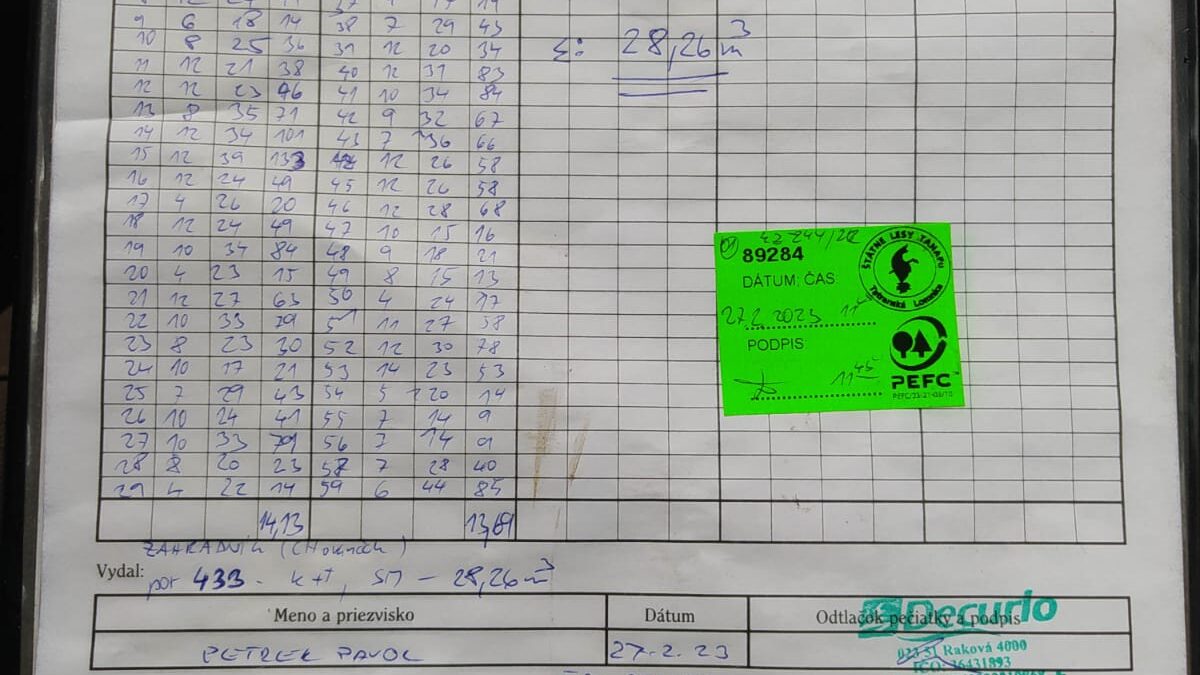 9 6 18 14 38 7 29 43
10 8 25 36 39 12 20 34
Σ: 28,26 m³
11 12 21 38 40 12 31 83
12 12 23 46 41 10 34 84
13 8 35 71 42 9 32 67
14 12 34 101 43 7 36 66
15 12 39 133 44 12 26 58
16 12 24 49 45 12 26 58
17 4 26 20 46 12 28 68
18 12 24 49 47 10 15 16
19 10 34 84 48 9 18 21
20 4 23 15 49 8 15 13
21 12 27 63 50 4 24 17
22 10 33 79 51 11 27 58
23 8 23 30 52 12 30 78
24 10 17 21 53 14 23 53
25 7 29 43 54 5 20 14
26 10 24 41 55 7 14 9
27 10 33 79 56 7 14 9
28 8 20 23 57 7 28 40
29 4 22 14 59 6 44 85
14,13 13,69
89284
DÁTUM, ČAS
27.2.2023 11
PODPIS
11 45
ŠTÁTNE LESY TANAPU
Tatranská Lomnica
PEFC™
PEFC/23-21-03/10
ZAHRADNÍK
Vydal:
por 433 - SM - 28,26 m³
Meno a priezvisko Dátum Odtlačok pečiatky a podpis
PETREK PAVOL 27.2.23
Decurio
023 51 Raková 4000
IČO: 36431893